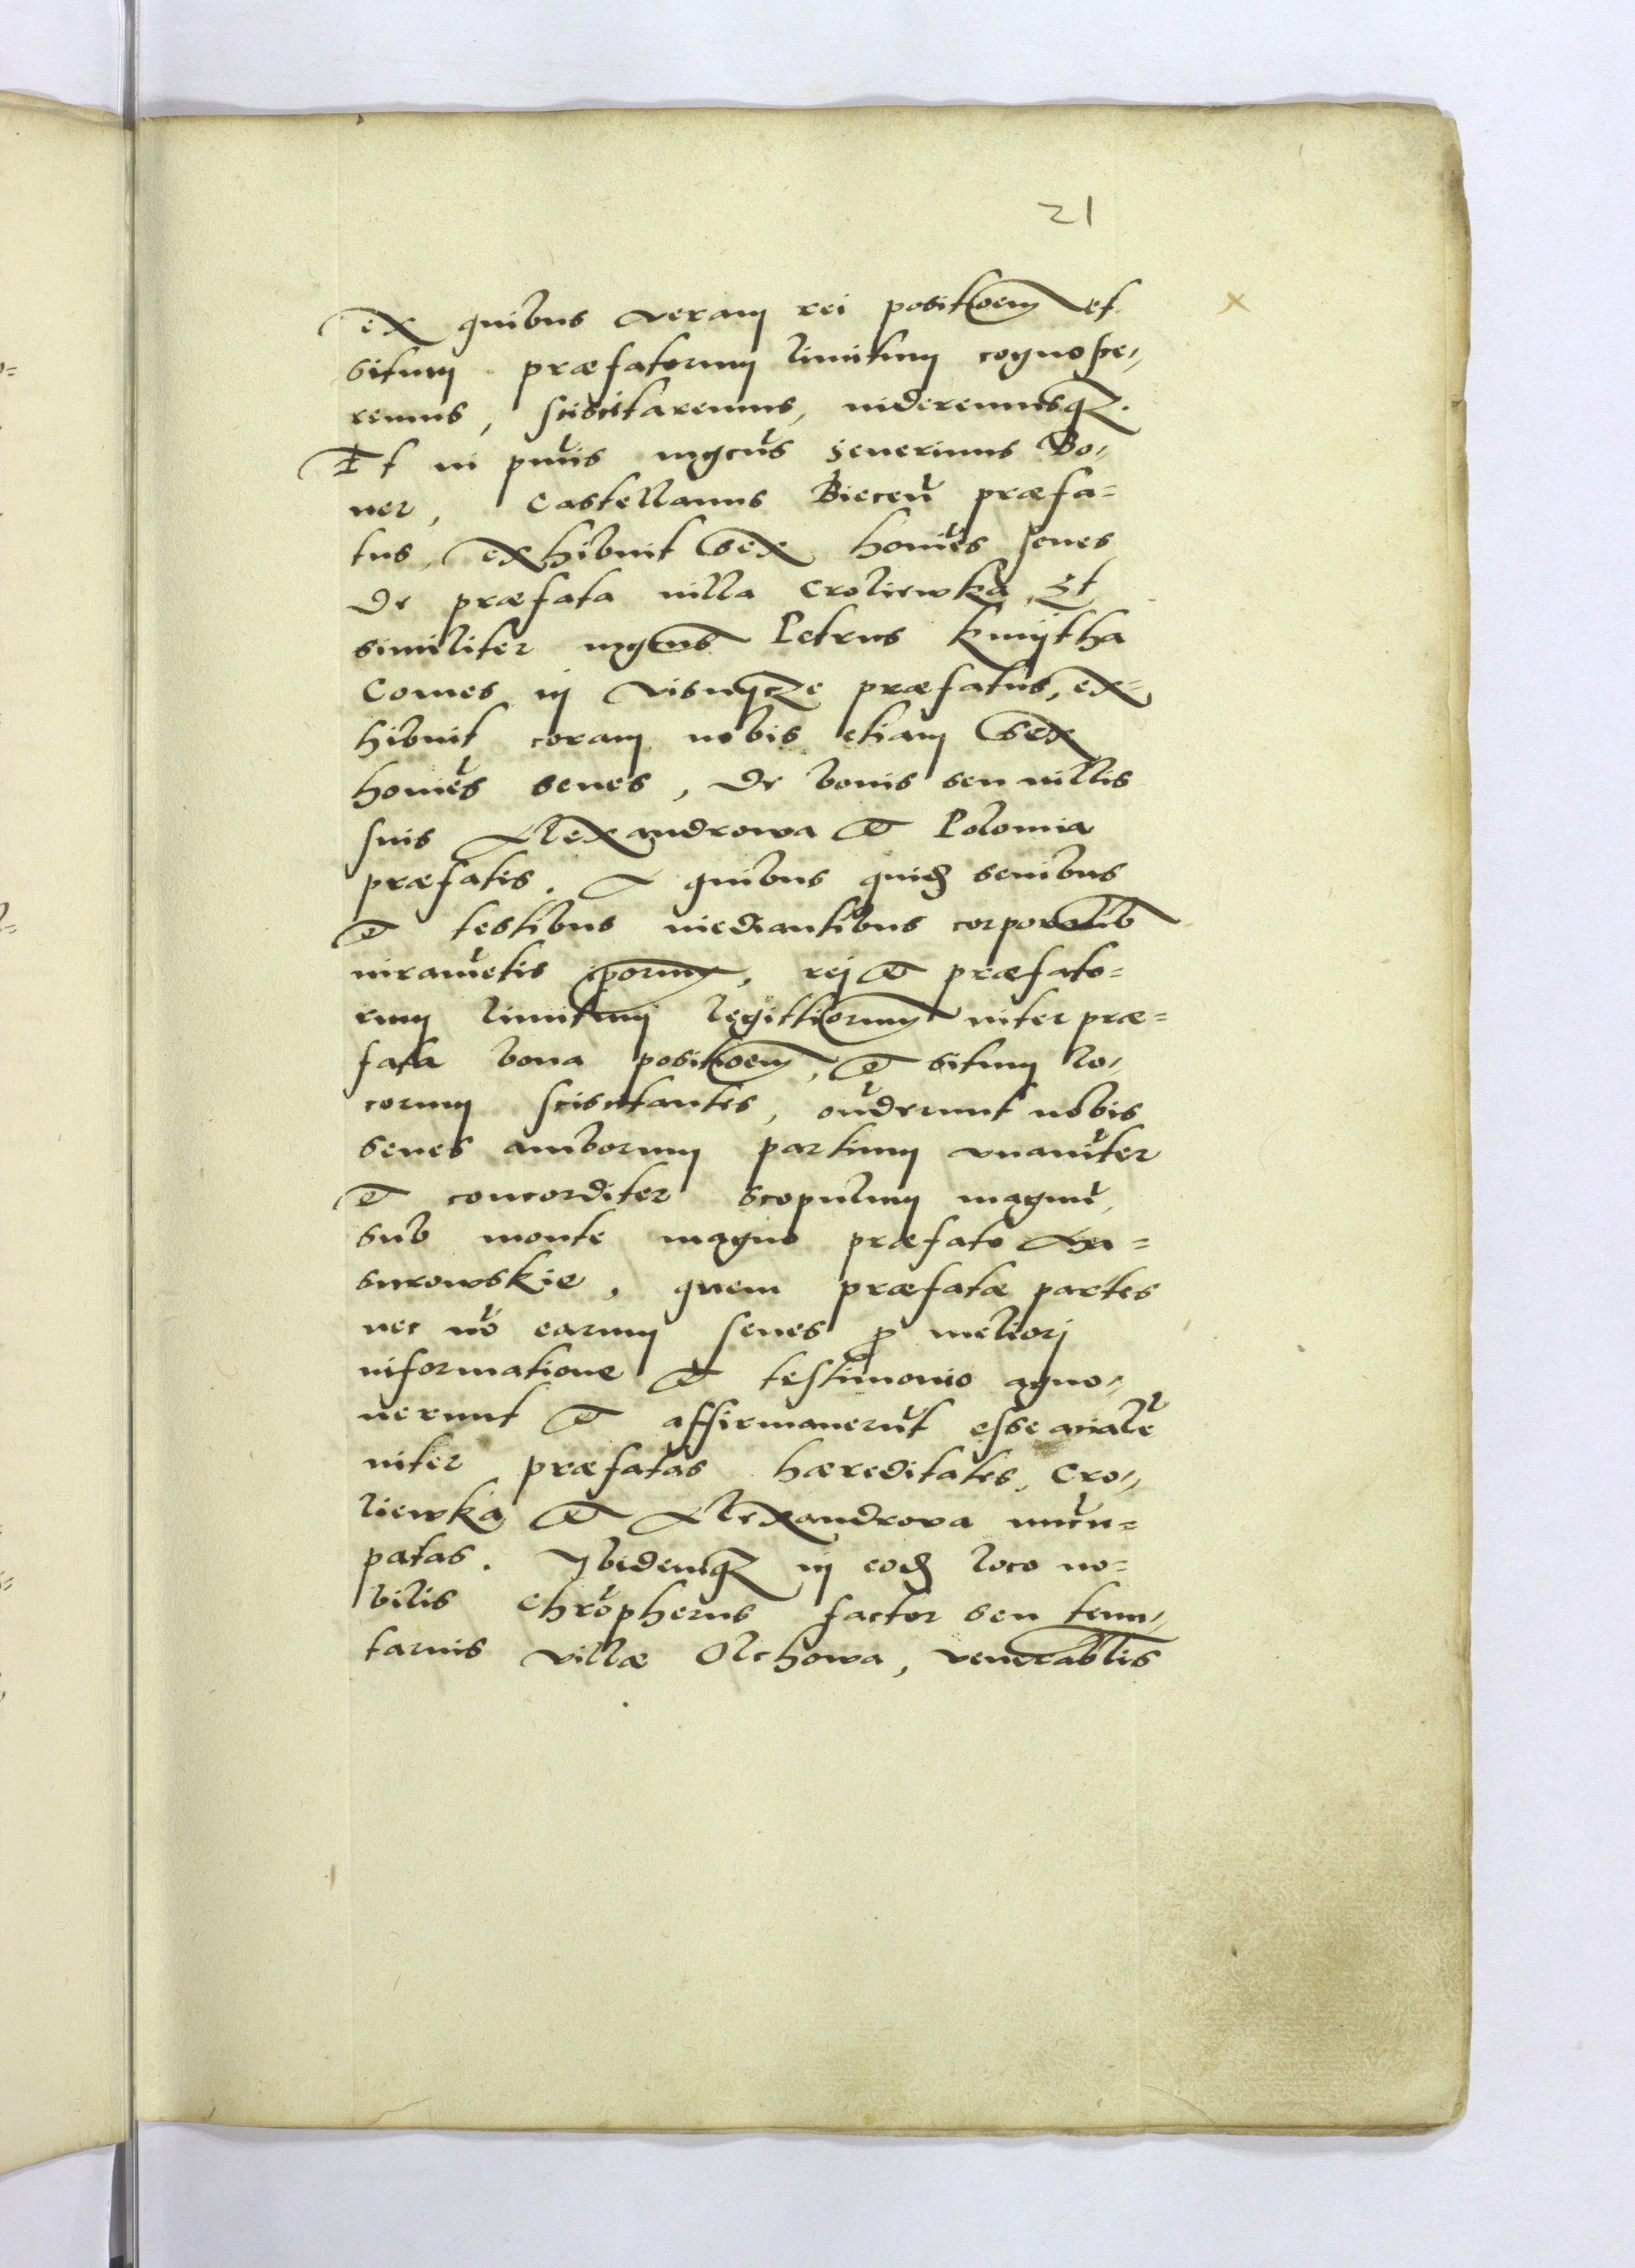 21
ex quibus veram rei positioem et
situm præfatorum limitum cognosce,,
remus, sciscitaremus, uideremusq3.
Et in pmis mgcus Seuerinus Bo,,
ner, Castellanus Biecen præfa=
tus, exhibuit sex homies senes
de præfata uilla Croliewka, Et
similiter mgcus Petrus Kmijtha
Comes in Visnycze præfatus, ex=
hibuit coram nobis etiam sex
homies senes, de bonis seu uillis
suis Alexandrowa et Polomia
præfatis. A quibus quid senibus
et testibus mediantibus corporalib
iuramētis ipsorum, rej et præfato=
rum limitum legittiorum inter præ=
fata bona positioem, et situm lo,,
corum sciscitantes, onderunt nobis
senes amborum partium vnamiter
et concorditer scopulum magnū,
sub monte magno præfato
surowskie, quem præfatæ partes
nec nō earum senes p meliorj
informatione et testimonio agno,,
uerunt et affirmauerūt esse
inter præfatas hæreditates, Cro,,
liewka et Alexandrova nūcu=
patas. Ybidemq3 in eod loco no=
bilis Chrōpherus factor seu tenu,,
tarius villæ Olchowa, venerablis